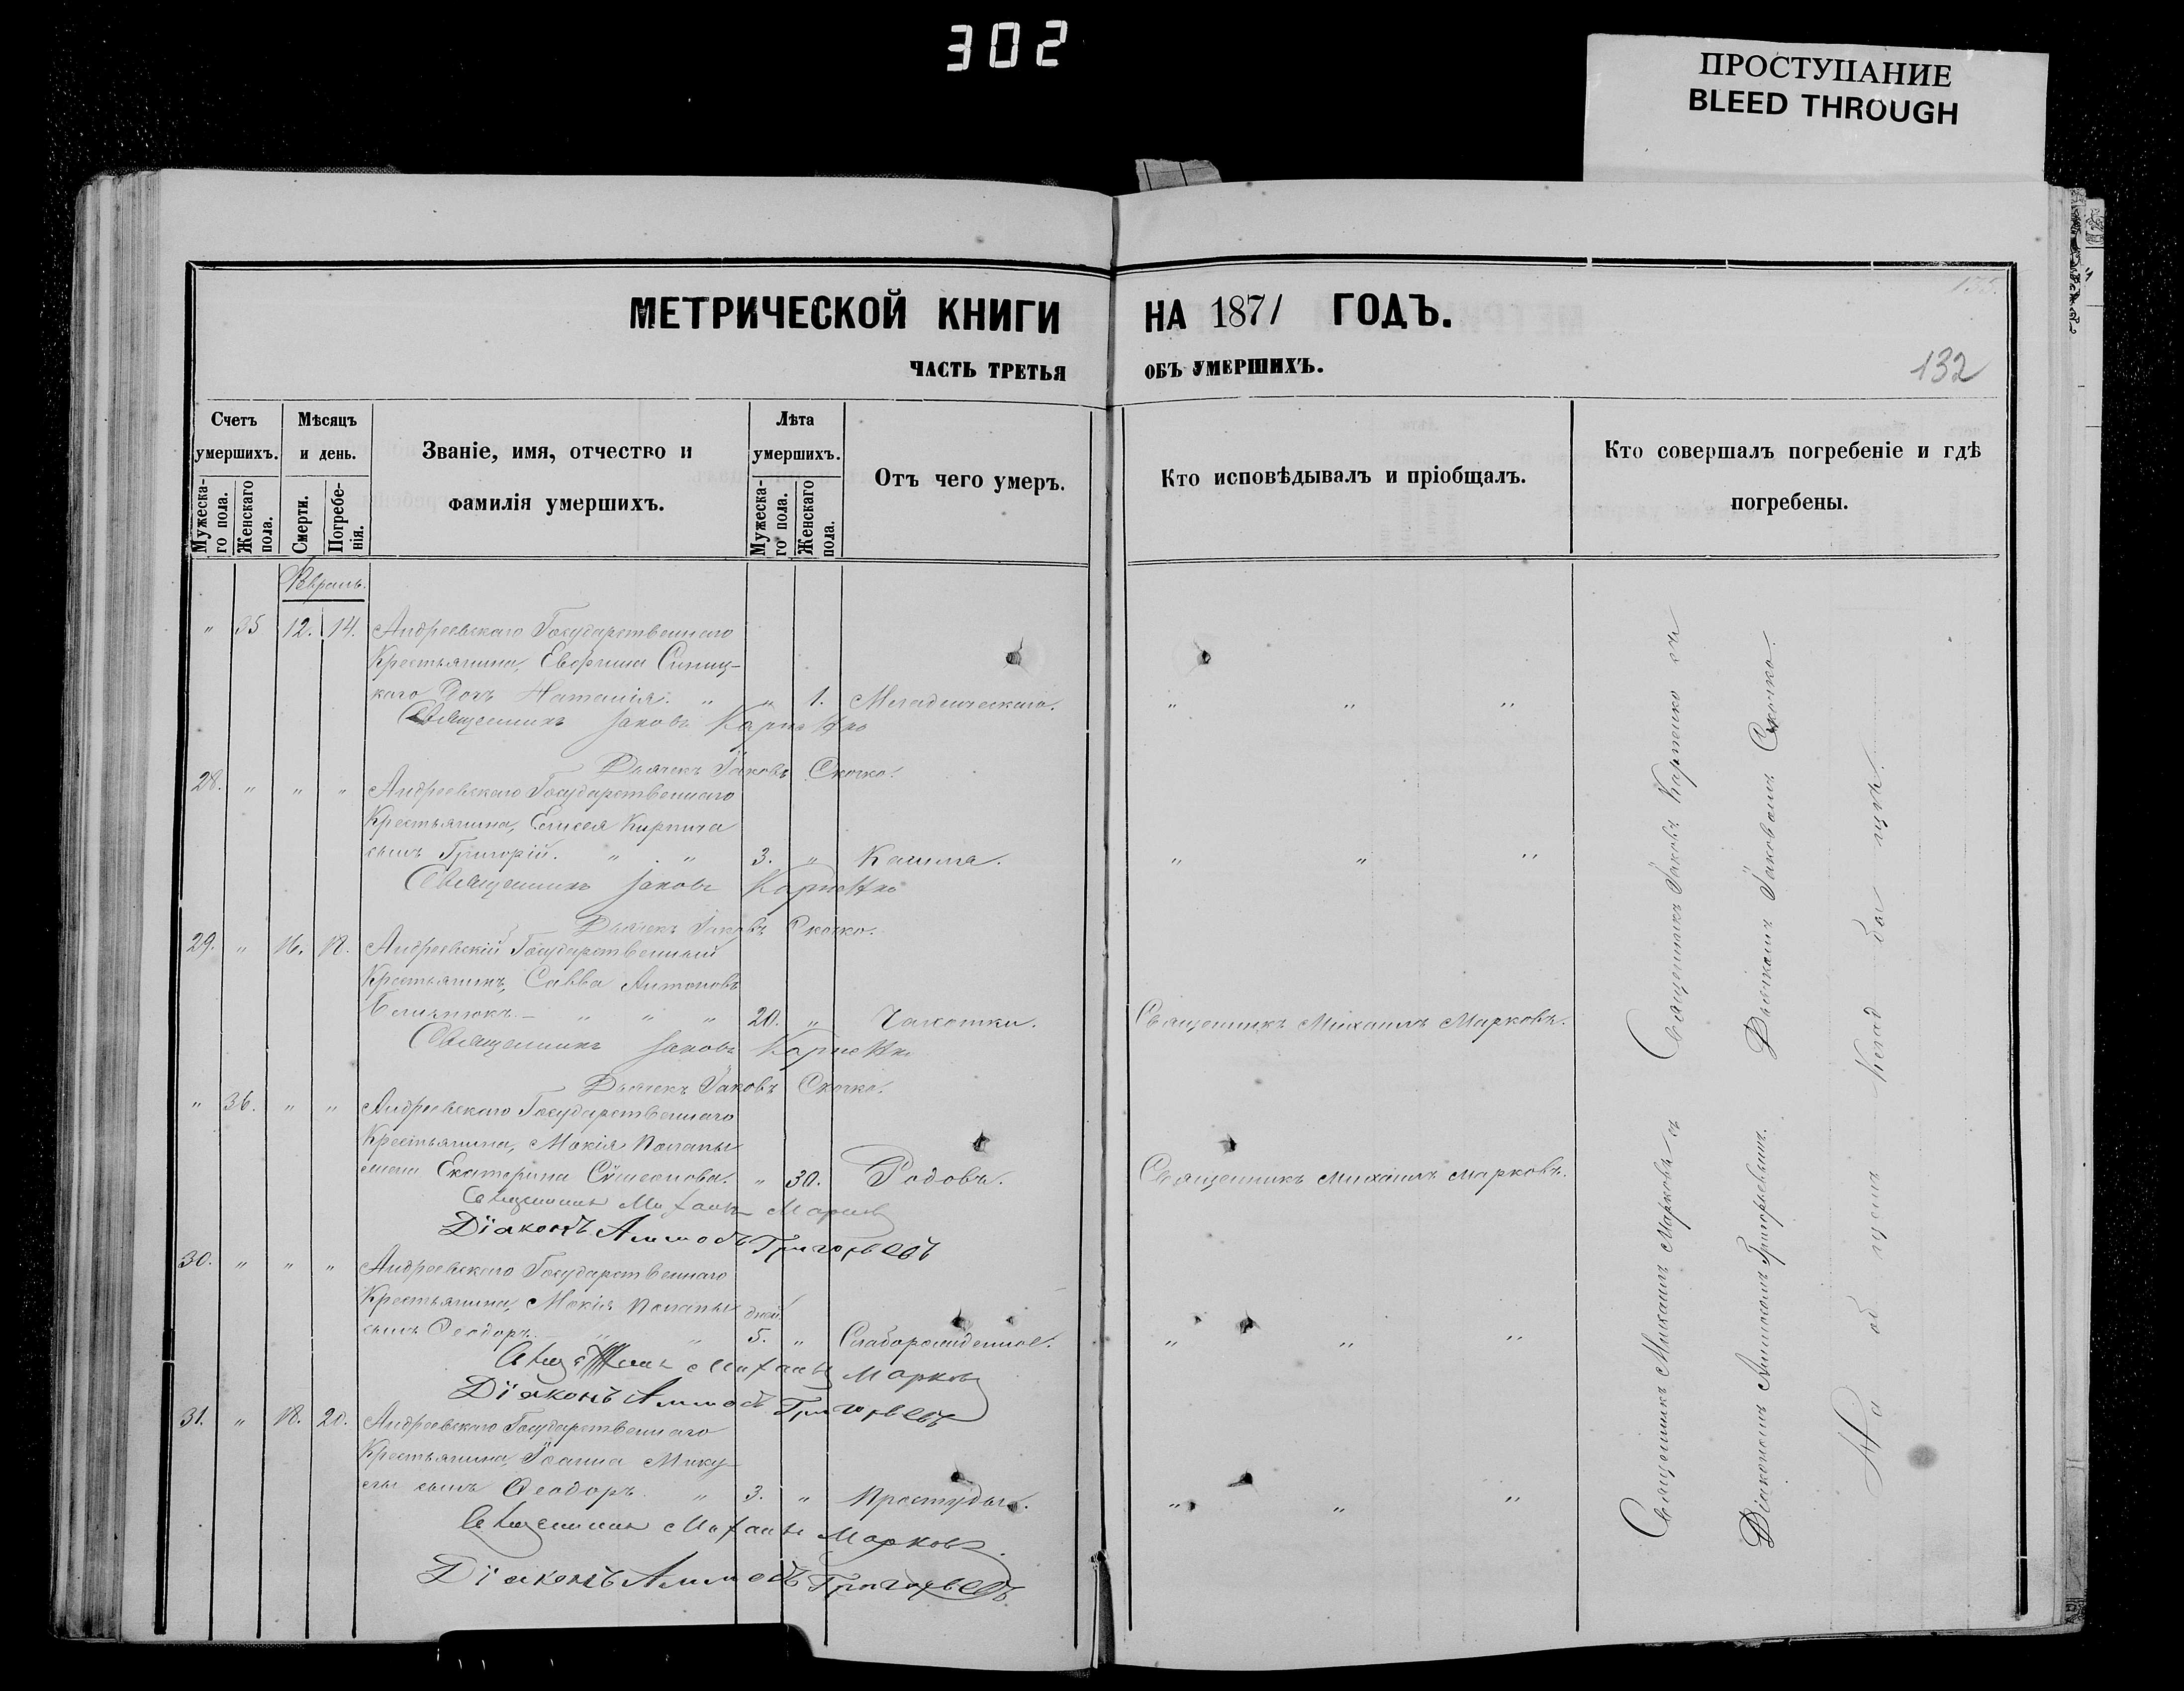 302
ПРОСТУПАНИЕ
BLEED THROUGH
МЕТРИЧЕСКОЙ КНИГИ НА 1871 ГОДЪ.
ЧАСТЬ ТРЕТЬЯ ОБЪ УМЕРШИХЪ.
132
Счетъ умершихъ.
Мужескаго пола.
Женскаго пола.
Мѣсяцъ и день.
Смерти.
Погребенія.
Званіе, имя, отчество и фамилія умершихъ.
Лѣта умершихъ.
Мужескаго пола.
Женскаго пола.
Отъ чего умеръ.
Кто исповѣдывалъ и пріобщалъ.
Кто совершалъ погребеніе и гдѣ погребены.
" 35 12. 14. Андреевскаго Государственнаго
Крестьянина,
каго Дочь Наталія. " " 1. " " "
Священникъ Іаковъ Карпенко
Дьячекъ Іаковъ Скочко.
28. " " " Андреевскаго Государственнаго
Крестьянина, Елисея Кирпича
сынъ Григорій. " " 3. " Кашля. " " "
Священникъ Іаковъ Карпенко
Дьячекъ Іаковъ Скочко.
29. " 16. 18. Андреевскій Государственный
Крестьянинъ, Савва Антоновъ
" " " 20. " Чахотки. Священникъ Михаилъ Марковъ.
Священникъ Іаковъ Карпенко
Дьячекъ Іаковъ Скочко.
" 36. " " Андреевскаго Государственнаго
Крестьянина, Мокія Потапы
жена Екатерина " 30. Родовъ. Священникъ Михаилъ Марковъ.
Священникъ Михаилъ Марковъ
Діаконъ Григорьевъ
30. " " " Андреевскаго Государственнаго
Крестьянина, Мокія Потапы дней
сынъ Ѳеодоръ. " " 5. " Слаборожденное. " " "
Священникъ Михаилъ Марковъ
Діаконъ Григорьевъ
31. " 18. 20. Андреевскаго Государственнаго
Крестьянина, Іоанна Мику-
лы сынъ Ѳеодоръ. " 3. " Простуды. " " "
Священникъ Михаилъ Марковъ.
Діаконъ Григорьевъ
Священникъ Іаковъ Карпенко съ
Дьячкомъ Іаковомъ Скочко.
Священникъ Михаилъ Марковъ съ
Діакономъ Григорьевымъ.
На общемъ кладбищѣ.